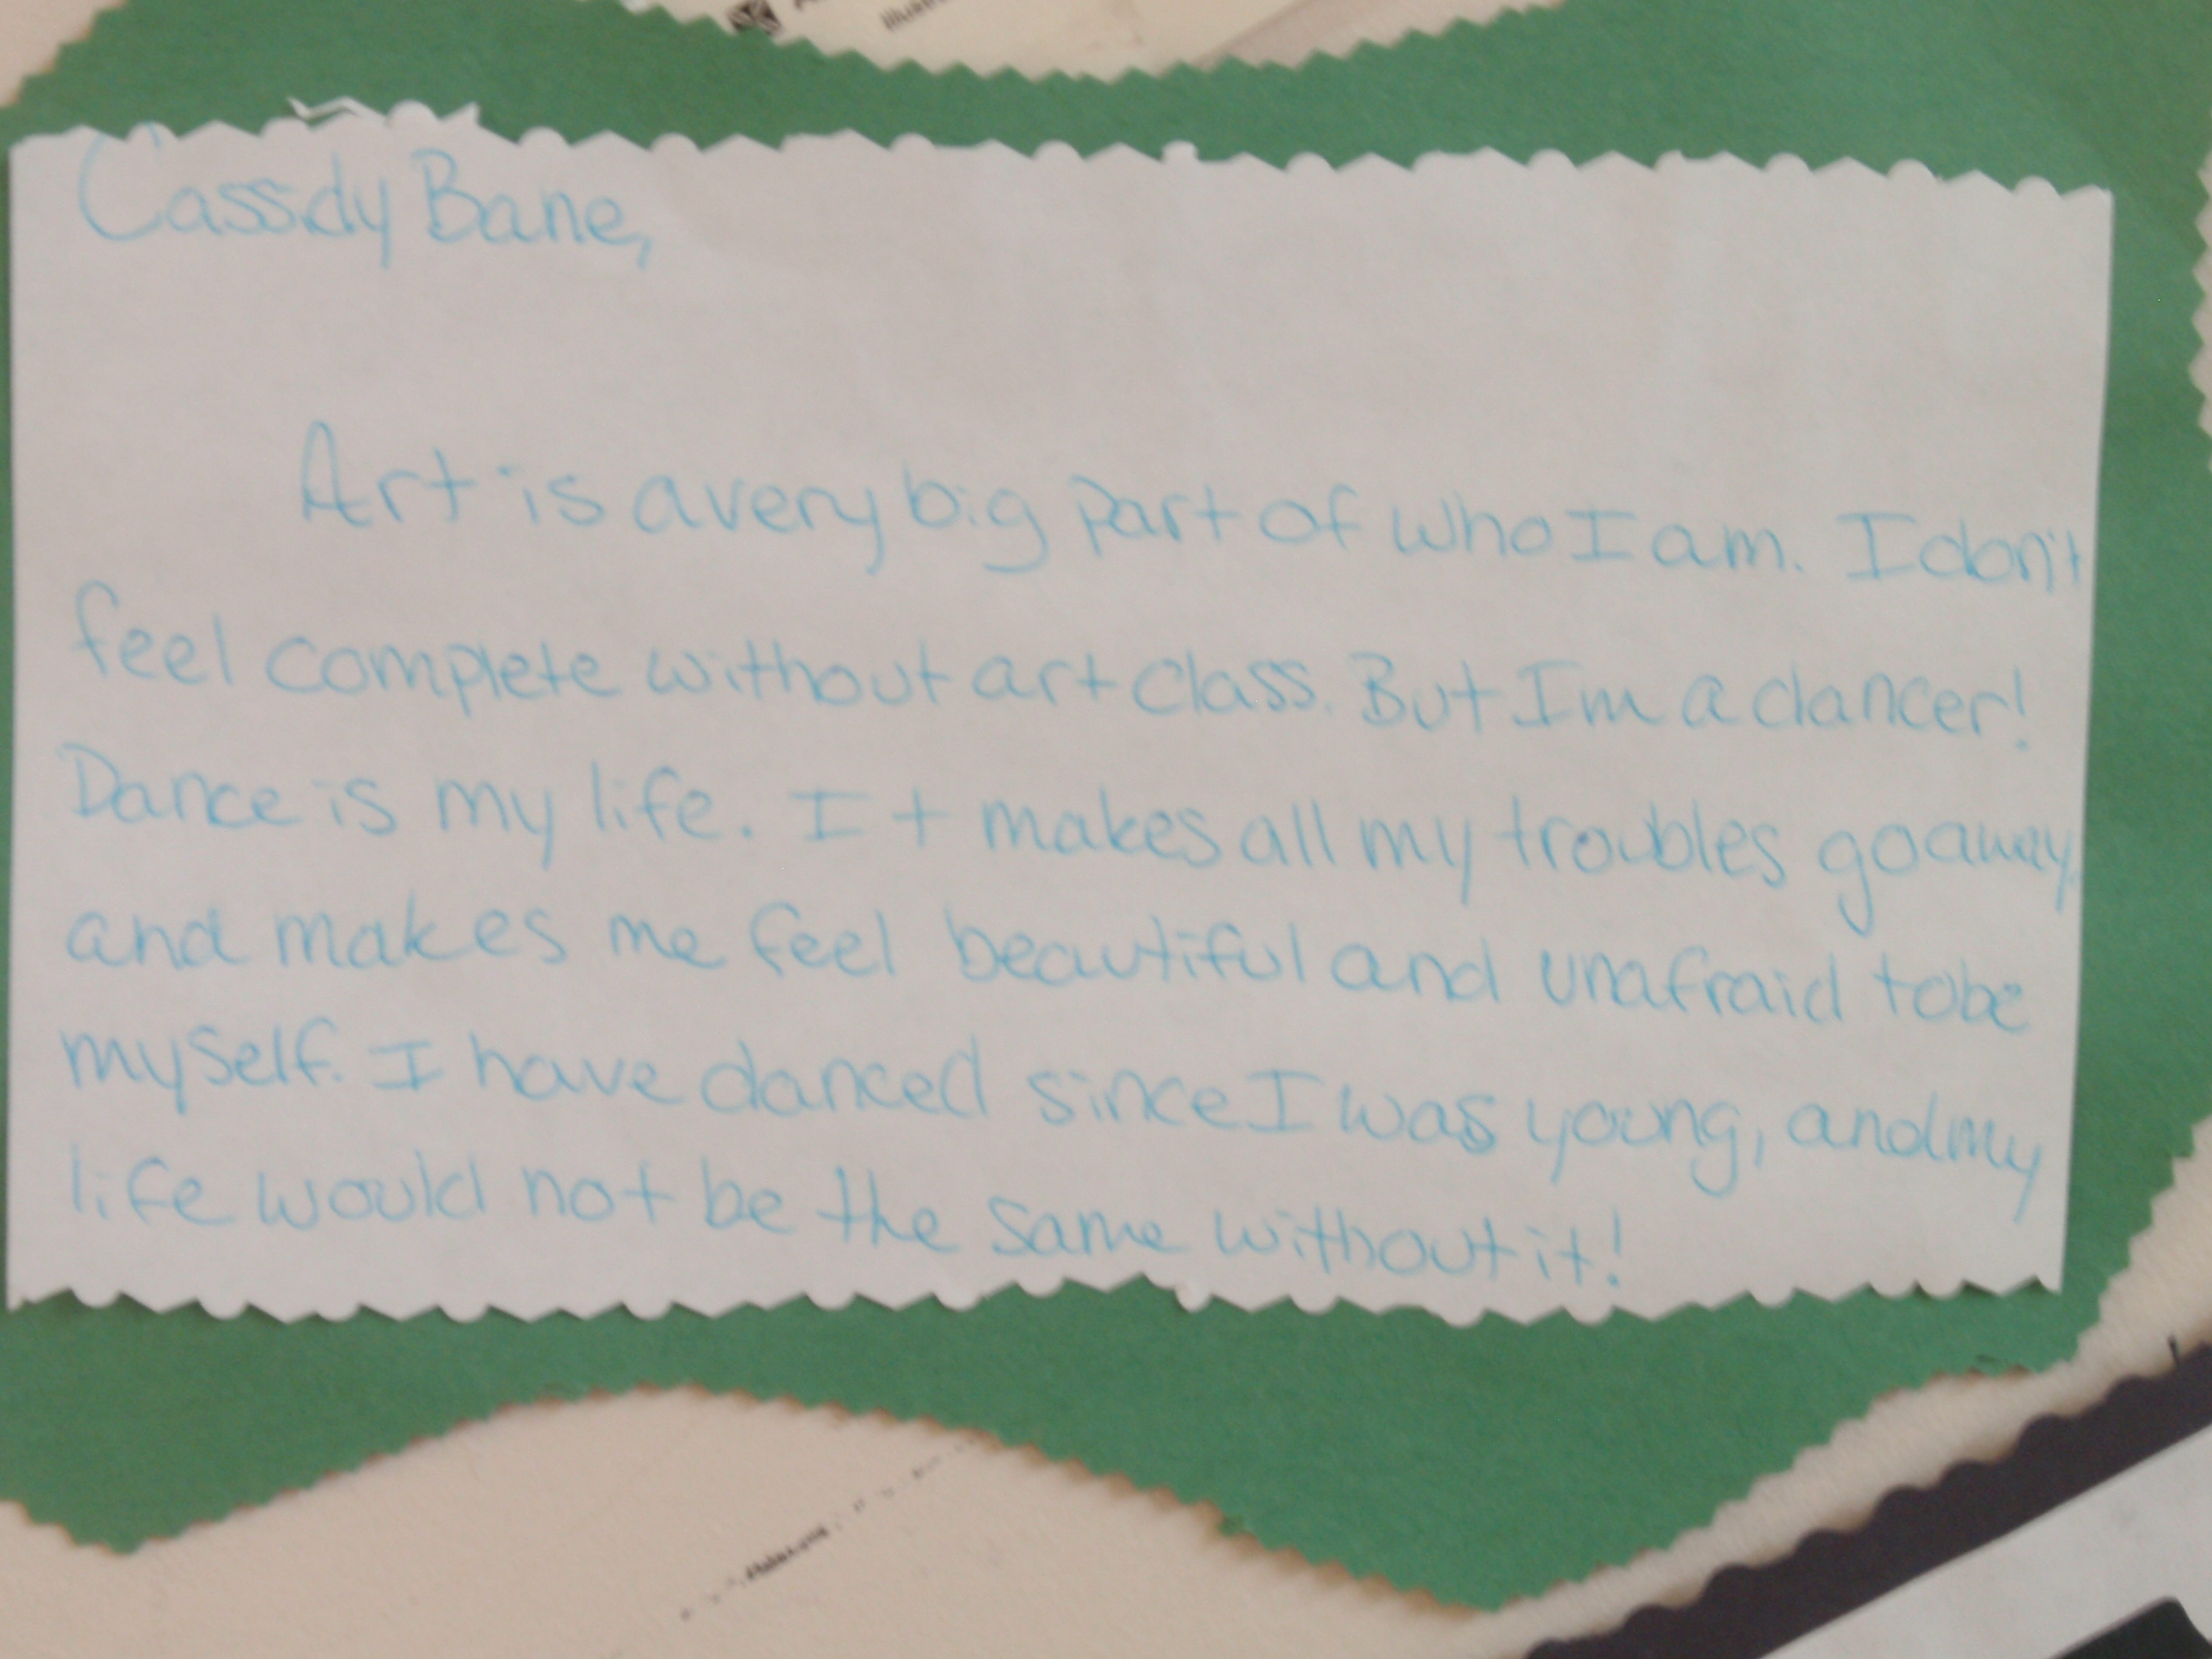 Cassidy Bane,
Art is a very big part of who I am. I don't
feel complete without art class. But Im a dancer!
Dance is my life. It makes all my troubles go away,
and makes me feel beautiful and unafraid to be
myself. I have danced since I was young, and my
life would not be the same without it!